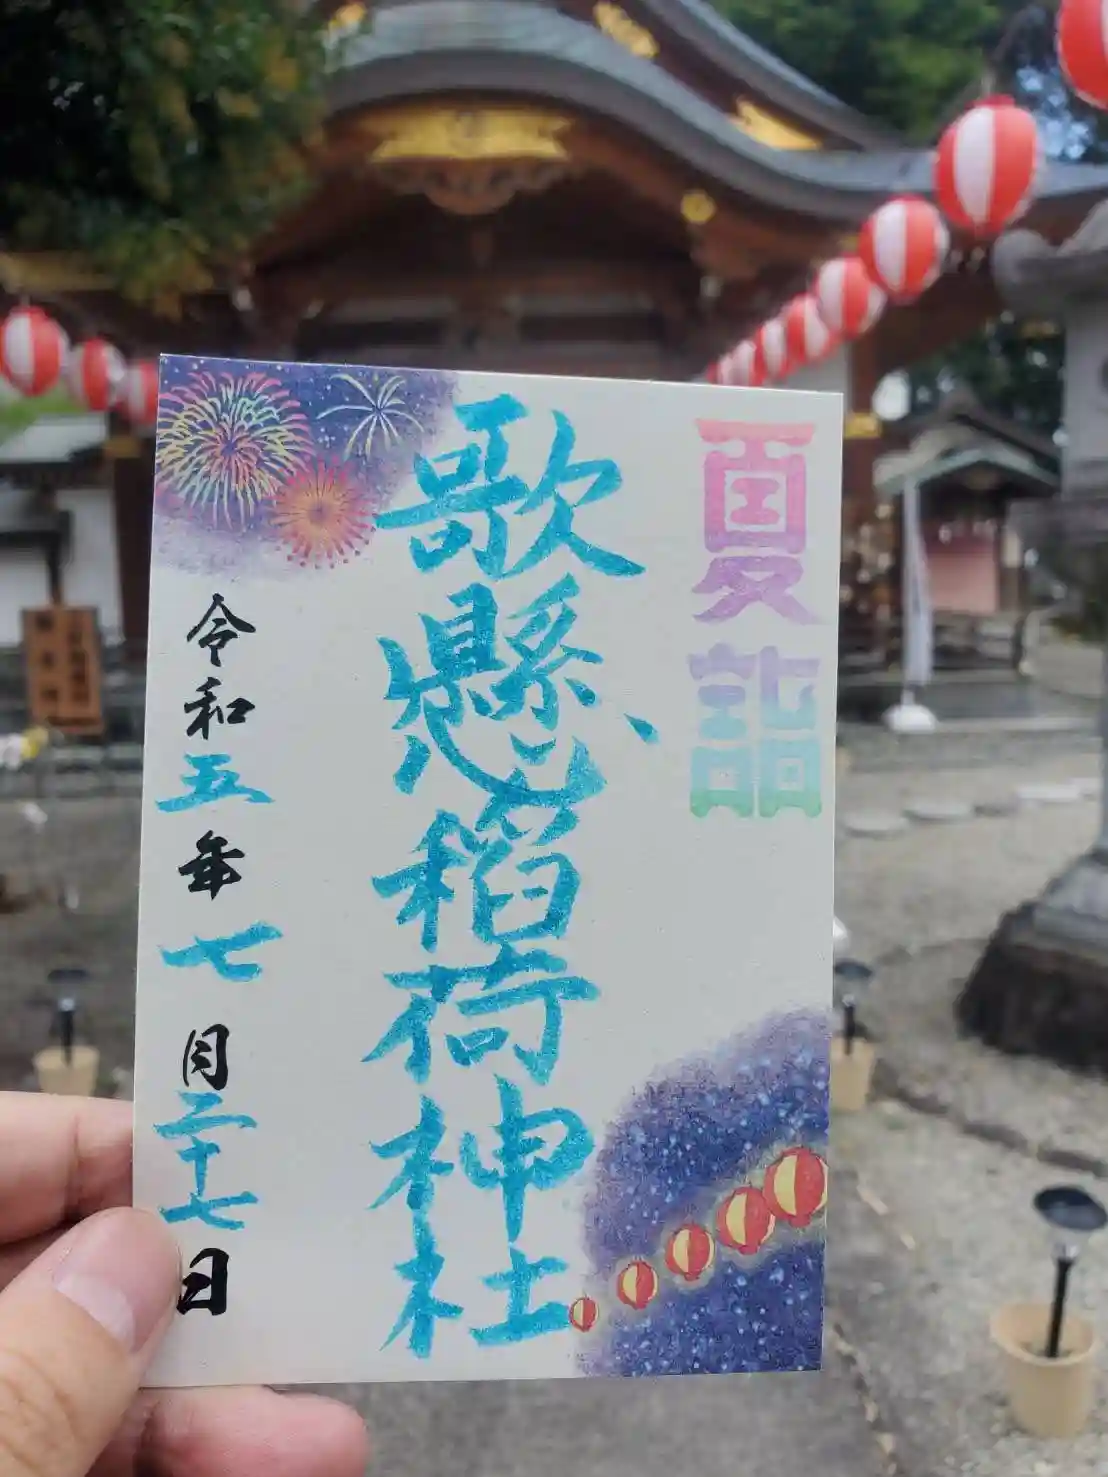 夏詣
歌懸稲荷神社
令和五年七月二十七日